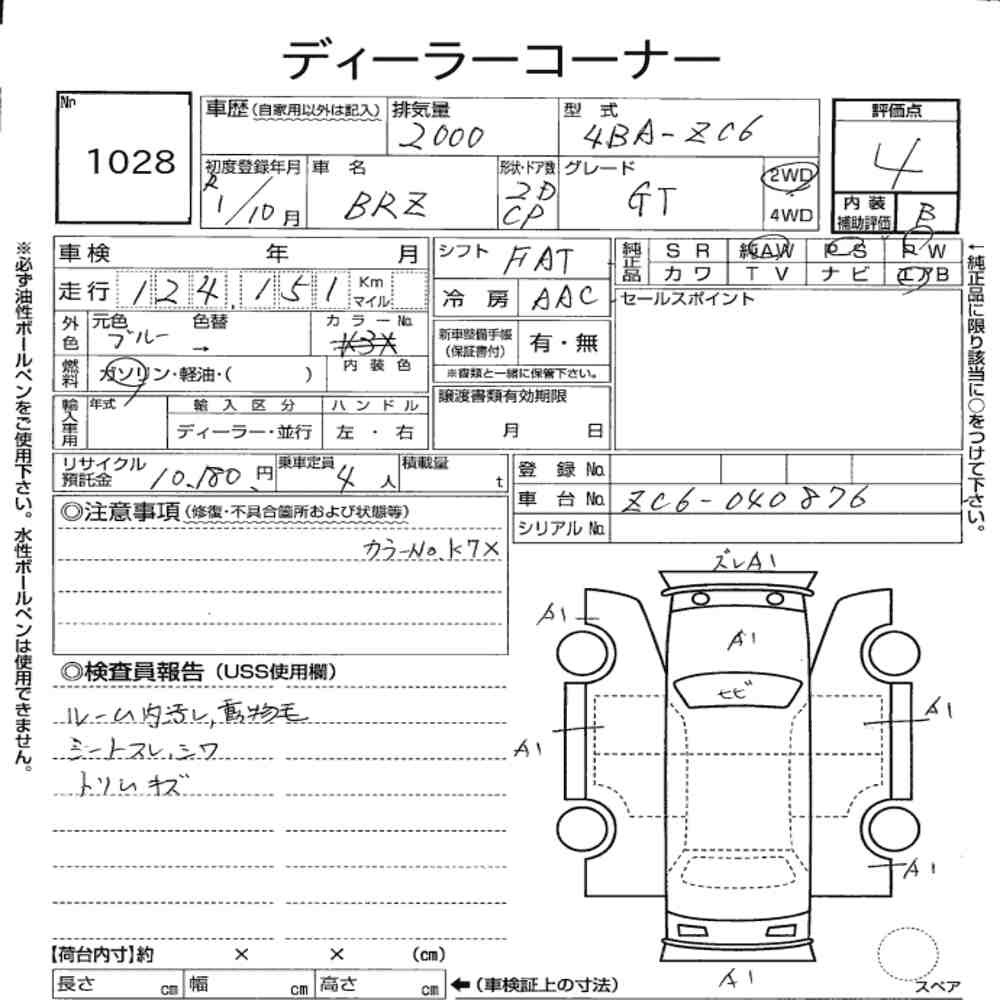 ディーラーコーナー
Nr 1028
車歴(自家用以外は記入) 排気量 2000 型式 4BA-ZC6
初度登録年月 R1/10月 車名 BRZ 形状・ドア数 2D CP グレード GT 2WD 4WD
評価点 4
内装補助評価 B
車検 年 月
走行 124,151 Km マイル
外色 元色 ブルー 色替 → カラーNo. K3X
燃料 ガソリン・軽油・( ) 内装色
輸入車用 年式 輸入区分 ハンドル
ディーラー・並行 左・右
シフト FAT
冷房 AAC
新車整備手帳(保証書付) 有・無
※書類と一緒に保管下さい。
譲渡書類有効期限
月 日
純正品 SR 純AW PS PW
カワ TV ナビ エアB
セールスポイント
リサイクル預託金 10,180円 乗車定員 4人 積載量 t
登録No.
車台No. ZC6-040876
シリアルNo.
◎注意事項(修復・不具合箇所および状態等)
カラーNo.K7X
◎検査員報告(USS使用欄)
ルーム内汚レ,動物毛
シートスレ,シワ
トリムキズ
ズレA1
A1
A1
トビ
A1
A1
A1
A1
スペア
【荷台内寸】約 × × (cm)
長さ cm 幅 cm 高さ cm ←(車検証上の寸法)
※必ず油性ボールペンをご使用下さい。水性ボールペンは使用できません。
←純正品に限り該当に○をつけて下さい。